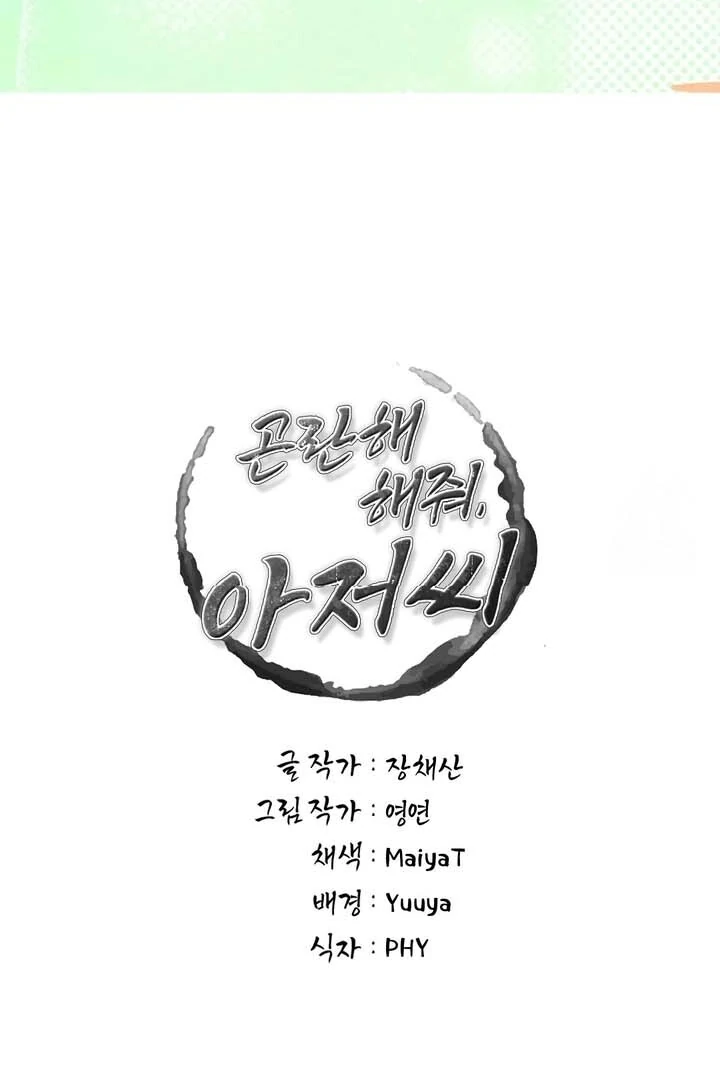 곤란해
해줘,
아저씨
글 작가 : 장채산
그림 작가 : 영연
채색 : MaiyaT
배경 : Yuuya
식자 : PHY